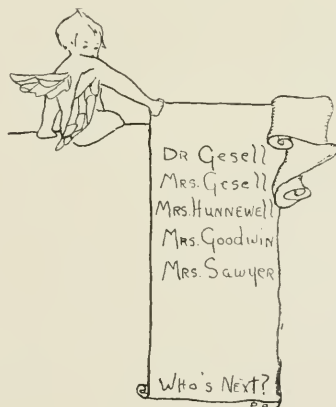 Dr Gesell
Mrs. Gesell
Mrs. Hunnewell
Mrs. Goodwin
Mrs. Sawyer
Who's Next?